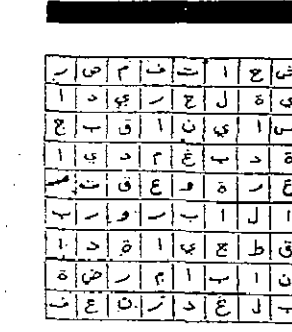 ش ع ا ت ف م ص ر
ي ة ل ج ر ي د ا
س ا ي ن ا ق ب ج
ة د ب غ م د ي ا
ع ر ة و ع ق ت
ا ل ا ب ر و ر ب
ق ط ج ي ا ة د ا
ن ا ب ا م ر ض ة
ب ل غ د ز ن ع ف